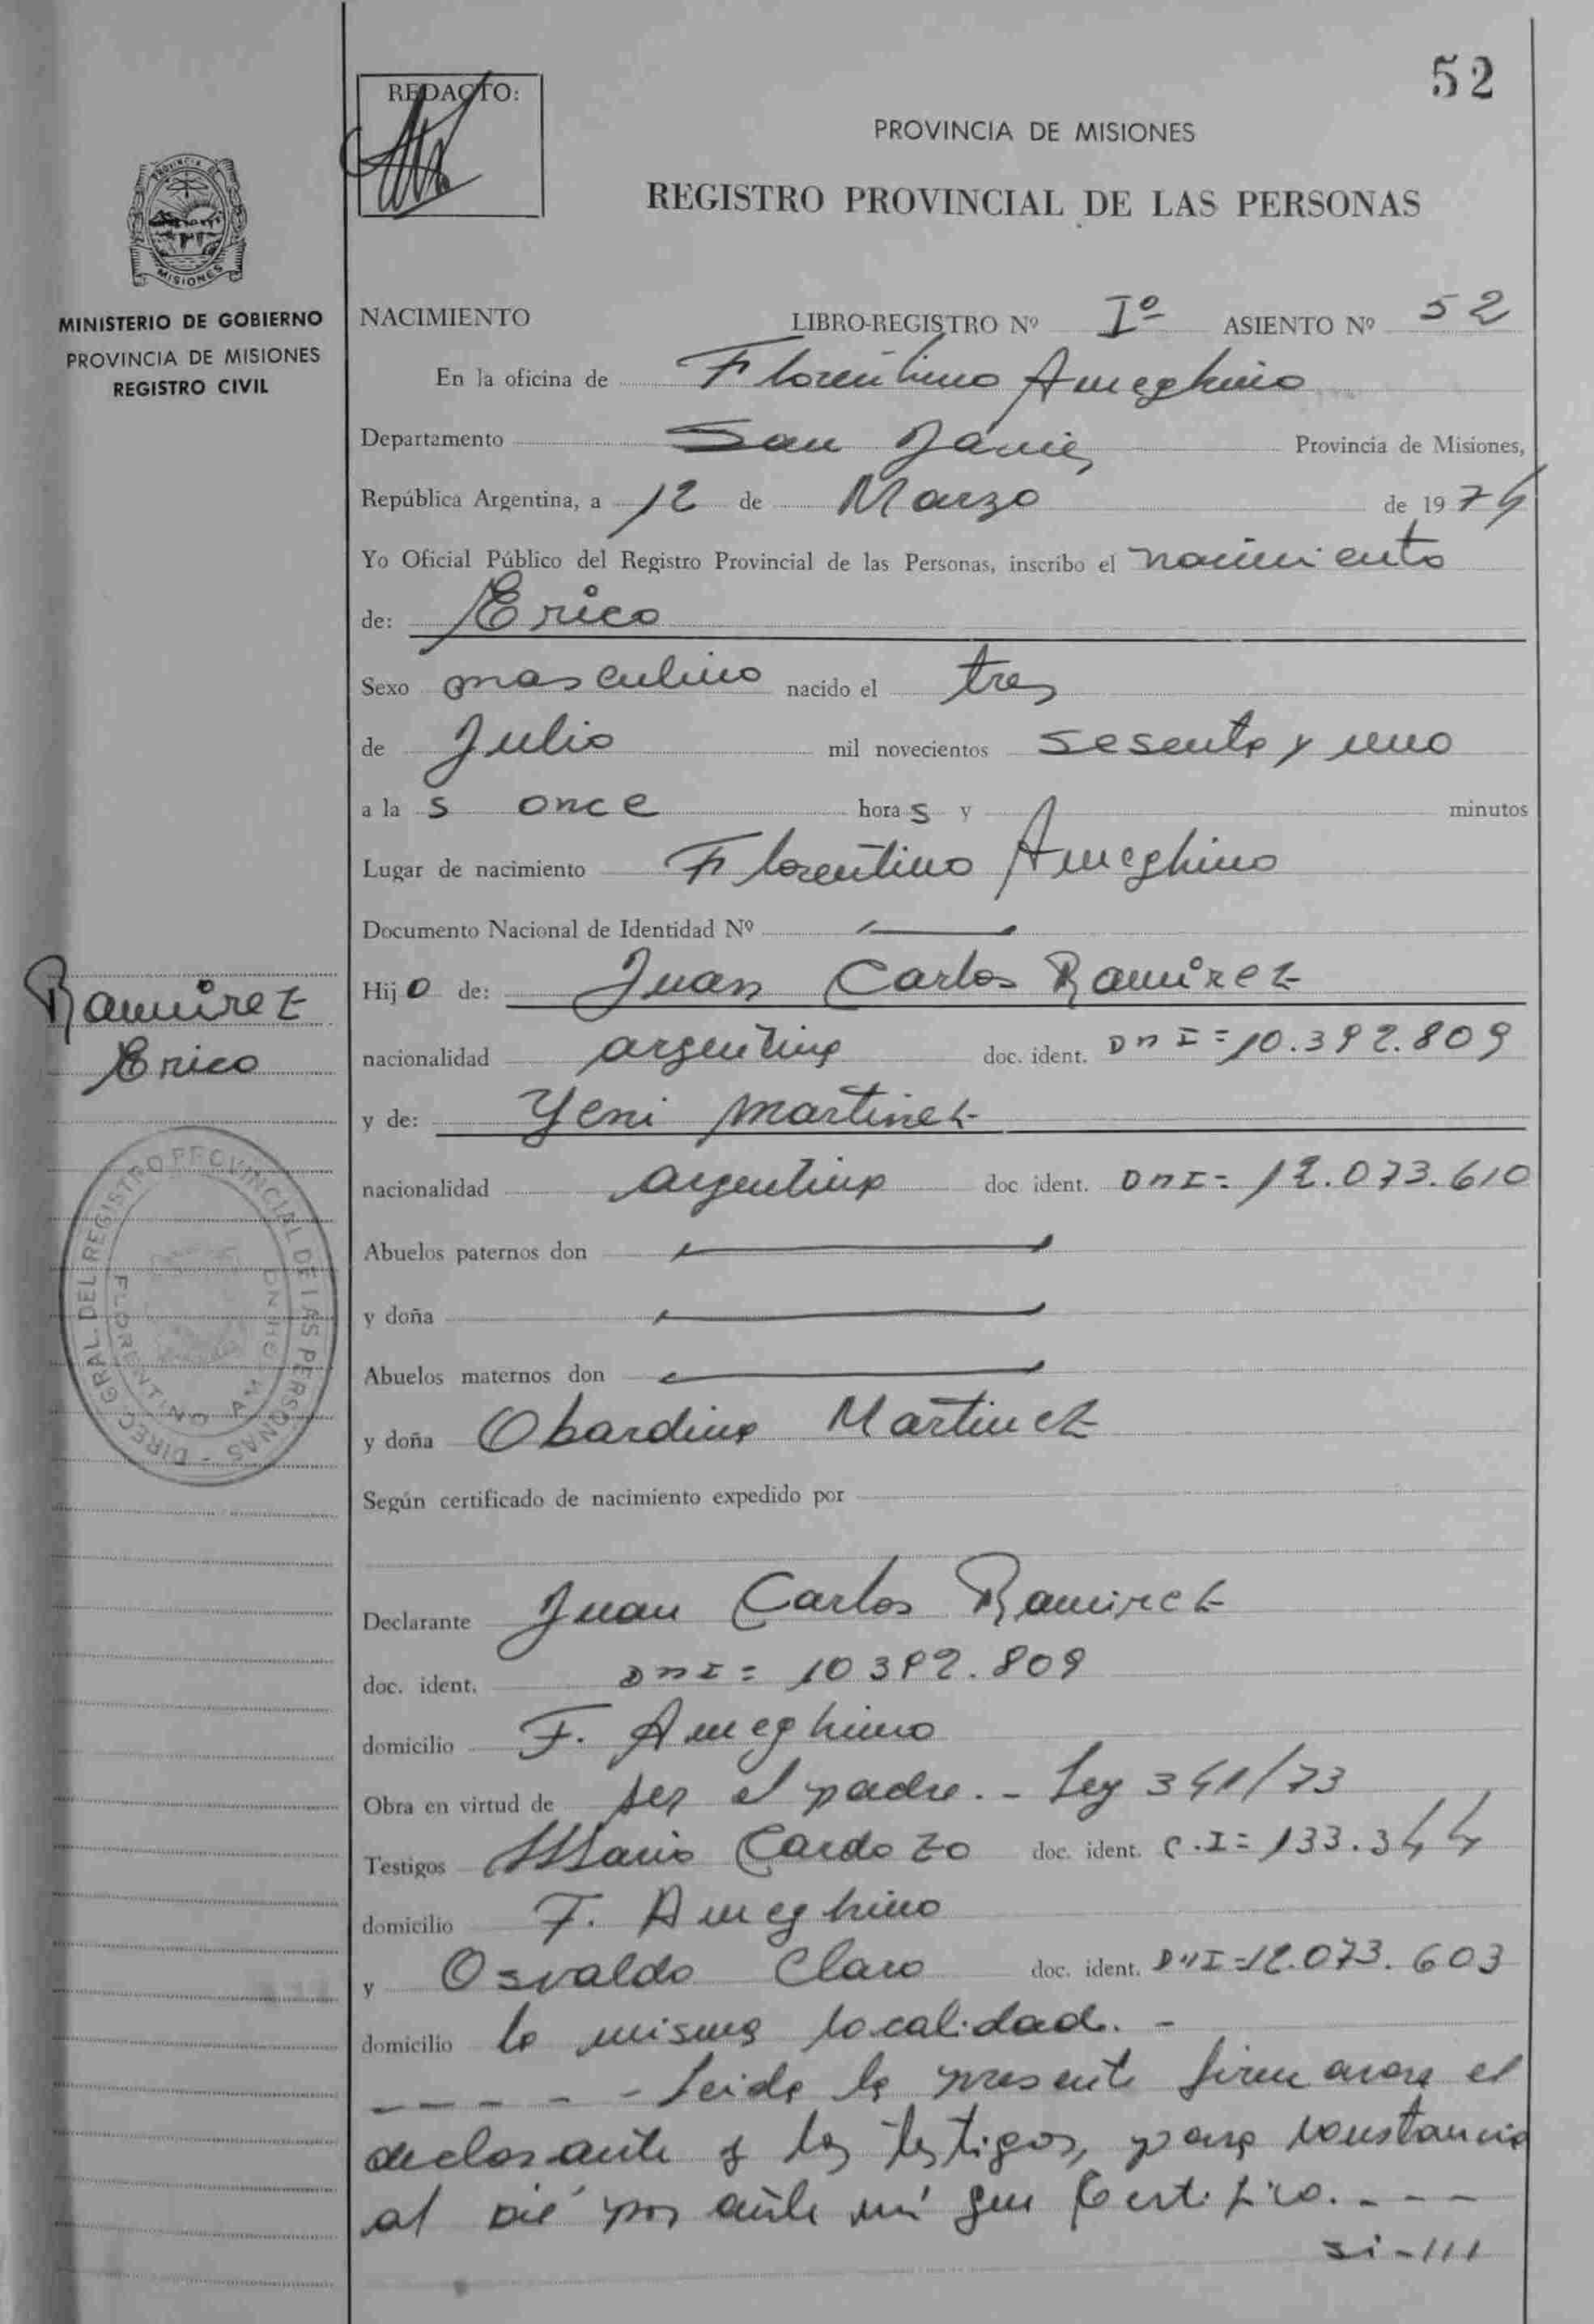 52
REDACTO:
PROVINCIA DE MISIONES
REGISTRO PROVINCIAL DE LAS PERSONAS
MISIONES
MINISTERIO DE GOBIERNO
PROVINCIA DE MISIONES
REGISTRO CIVIL
NACIMIENTO LIBRO-REGISTRO Nº Iº ASIENTO Nº 52
En la oficina de Florentino Ameghino
Departamento San Javier Provincia de Misiones,
República Argentina, a 12 de Marzo de 1974
Yo Oficial Público del Registro Provincial de las Personas, inscribo el nacimiento
de: Erico
Sexo masculino nacido el tres
de Julio mil novecientos sesenta y uno
a las once horas y minutos
Lugar de nacimiento Florentino Ameghino
Documento Nacional de Identidad Nº
Ramirez
Erico
Hijo de: Juan Carlos Ramirez
nacionalidad argentina doc. ident. DNI= 10.392.809
y de: Yeni Martinez
nacionalidad argentina doc ident. DNI= 12.073.610
DIREC. GRAL. DEL REGISTRO PROVINCIAL DE LAS PERSONAS -
FLORENTINO AMEGHINO
Abuelos paternos don
y doña
Abuelos maternos don
y doña Obardina Martinez
Según certificado de nacimiento expedido por
Declarante Juan Carlos Ramirez
doc. ident. DNI= 10392.809
domicilio F. Ameghino
Obra en virtud de ser el padre.- Ley 341/73
Testigos Mario Cardozo doc. ident. C.I= 133.344
domicilio F. Ameghino
y Osvaldo Claro doc. ident. DNI=12.073.603
domicilio la misma localidad.-
- - - - - Leida la presente firmaran el
declarante y los testigos, para constancia
al pié por ante mi que Certifico. - - -
si-///